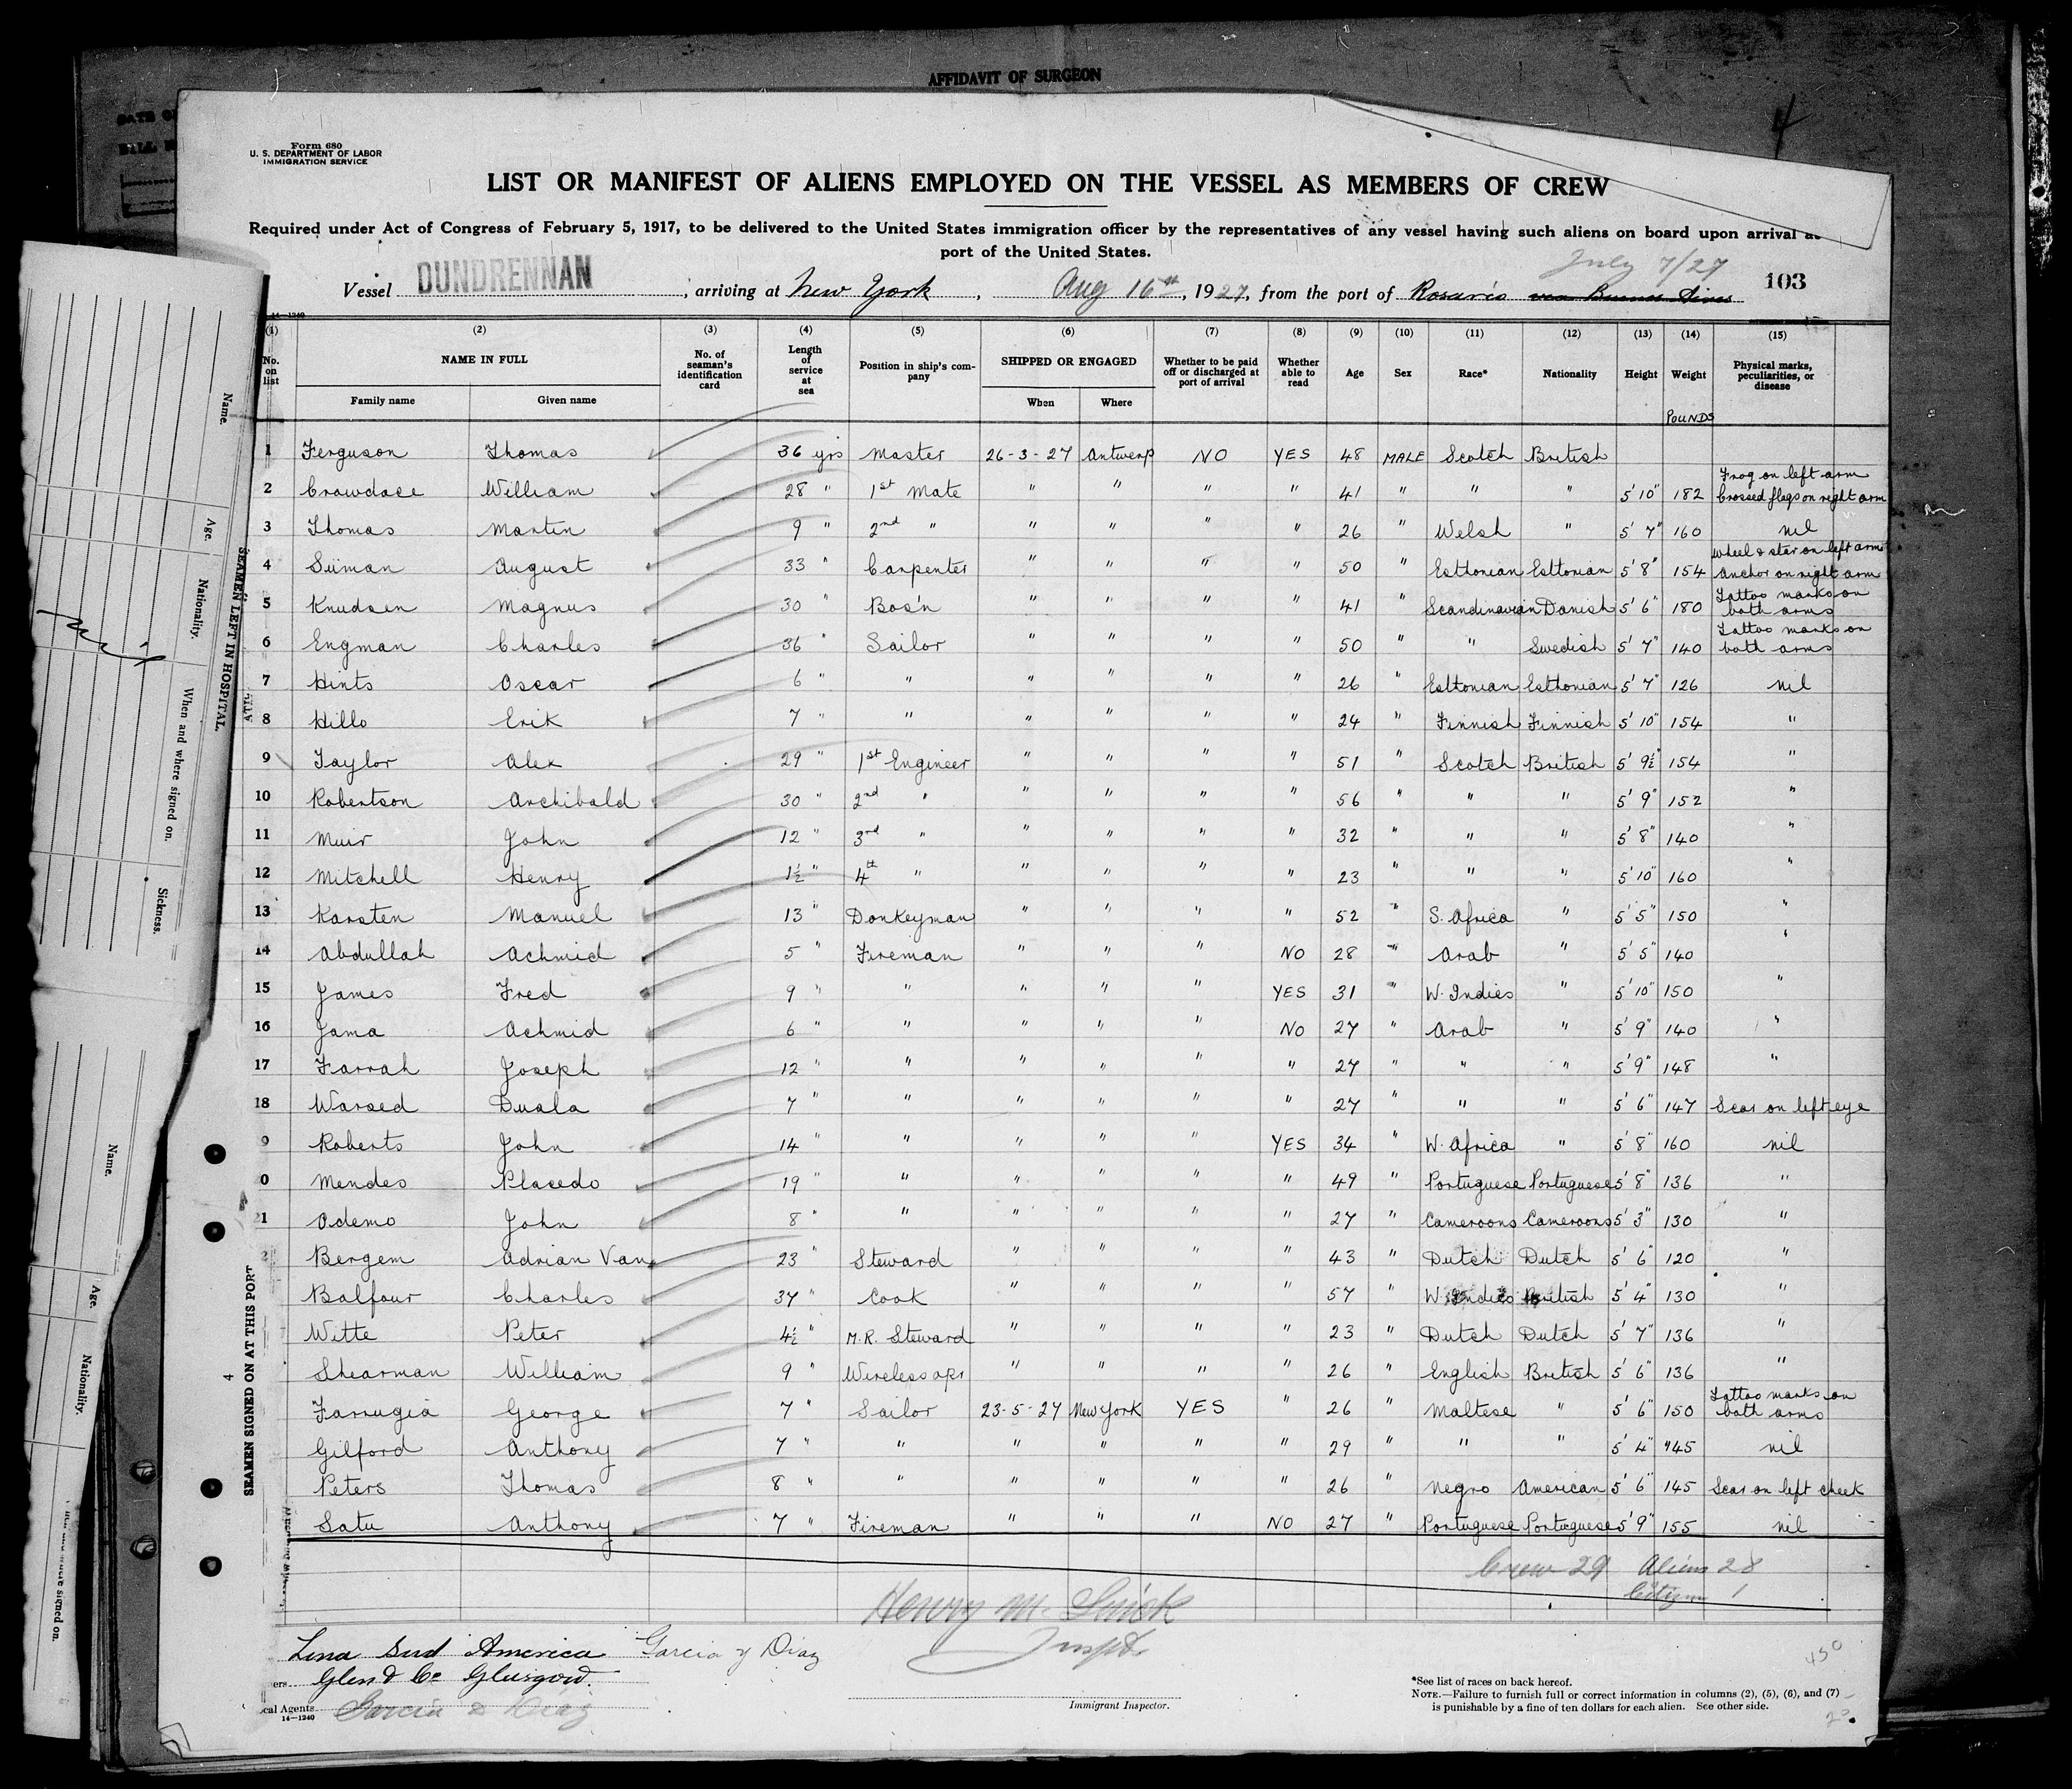 AFFIDAVIT OF SURGEON
4
Form 680
U. S. DEPARTMENT OF LABOR
IMMIGRATION SERVICE
LIST OR MANIFEST OF ALIENS EMPLOYED ON THE VESSEL AS MEMBERS OF CREW
Required under Act of Congress of February 5, 1917, to be delivered to the United States immigration officer by the representatives of any vessel having such aliens on board upon arrival at
port of the United States.
July 7/27
Vessel DUNDRENNAN, arriving at New York, Aug 16th, 1927, from the port of Rosario via Buenos Aires 103
14—1240
(1) (2) (3) (4) (5) (6) (7) (8) (9) (10) (11) (12) (13) (14) (15)
No. on list NAME IN FULL Family name Given name No. of seaman's identification card Length of service at sea Position in ship's company SHIPPED OR ENGAGED When Where Whether to be paid off or discharged at port of arrival Whether able to read Age Sex Race* Nationality Height Weight Physical marks, peculiarities, or disease
POUNDS
1 Ferguson Thomas 36 yrs Master 26-3-27 Antwerp NO YES 48 MALE Scotch British
2 Crowdace William 28 " 1st Mate " " " " 41 " " " 5' 10" 182 Frog on left arm Crossed flags on right arm
3 Thomas Martin 9 " 2nd " " " " " 26 " Welsh " 5' 7" 160 nil
4 Siiman August 33 " Carpenter " " " " 50 " Esthonian Esthonian 5' 8" 154 Wheel & star on left arm Anchor on right arm
5 Knudsen Magnus 30 " Bos'n " " " " 41 " Scandinavian Danish 5' 6" 180 Tattoo marks on both arms
6 Engman Charles 36 " Sailor " " " " 50 " " Swedish 5' 7" 140 Tattoo marks on both arms
7 Hints Oscar 6 " " " " " " 26 " Esthonian Esthonian 5' 7" 126 nil
8 Hillo Erik 7 " " " " " " 24 " Finnish Finnish 5' 10" 154 "
9 Taylor Alex 29 " 1st Engineer " " " " 51 " Scotch British 5' 9½" 154 "
10 Robertson Archibald 30 " 2nd " " " " " 56 " " " 5' 9" 152 "
11 Muir John 12 " 3rd " " " " " 32 " " " 5' 8" 140 "
12 Mitchell Henry 1½ " 4th " " " " " 23 " " " 5' 10" 160 "
13 Karsten Manuel 13 " Donkeyman " " " " 52 " S. Africa " 5' 5" 150 "
14 Abdullah Achmid 5 " Fireman " " " NO 28 " Arab " 5' 5" 140 "
15 James Fred 9 " " " " " YES 31 " W. Indies " 5' 10" 150 "
16 Jama Achmid 6 " " " " " NO 27 " Arab " 5' 9" 140 "
17 Farrah Joseph 12 " " " " " " 27 " " " 5' 9" 148 "
18 Warsed Duala 7 " " " " " " 27 " " " 5' 6" 147 Scar on left eye
9 Roberts John 14 " " " " " YES 34 " W. Africa " 5' 8" 160 nil
0 Mendes Placedo 19 " " " " " " 49 " Portuguese Portuguese 5' 8" 136 "
21 Odemo John 8 " " " " " " 27 " Cameroons Cameroons 5' 3" 130 "
2 Bergem Adrian Van 23 " Steward " " " " 43 " Dutch Dutch 5' 6" 120 "
Balfour Charles 37 " Cook " " " " 57 " W. Indies British 5' 4" 130 "
Witte Peter 4½ " M.R. Steward " " " " 23 " Dutch Dutch 5' 7" 136 "
Shearman William 9 " Wireless opr " " " " 26 " English British 5' 6" 136 "
Farrugia George 7 " Sailor 23-5-27 New York YES " 26 " Maltese " 5' 6" 150 Tattoo marks on both arms
Gilford Anthony 7 " " " " " " 29 " " " 5' 4" 145 nil
Peters Thomas 8 " " " " " " 26 " Negro American 5' 6" 145 Scar on left cheek
Satu Anthony 7 " Fireman " " " NO 27 " Portuguese Portuguese 5' 9" 155 nil
Crew 29 Aliens 28
Citizen 1
Henry M.
Inspt.
Immigrant Inspector.
Lina Sud America Garcia y Diaz
ers Glen & Co Glasgow.
cal Agents Garcia & Diaz
14—1240
*See list of races on back hereof.
NOTE.—Failure to furnish full or correct information in columns (2), (5), (6), and (7)
is punishable by a fine of ten dollars for each alien. See other side.
SEAMEN LEFT IN HOSPITAL.
Name. Age. Nationality. When and where signed on. Sickness.
nil
4
SEAMEN SIGNED ON AT THIS PORT
Name. Age. Nationality.